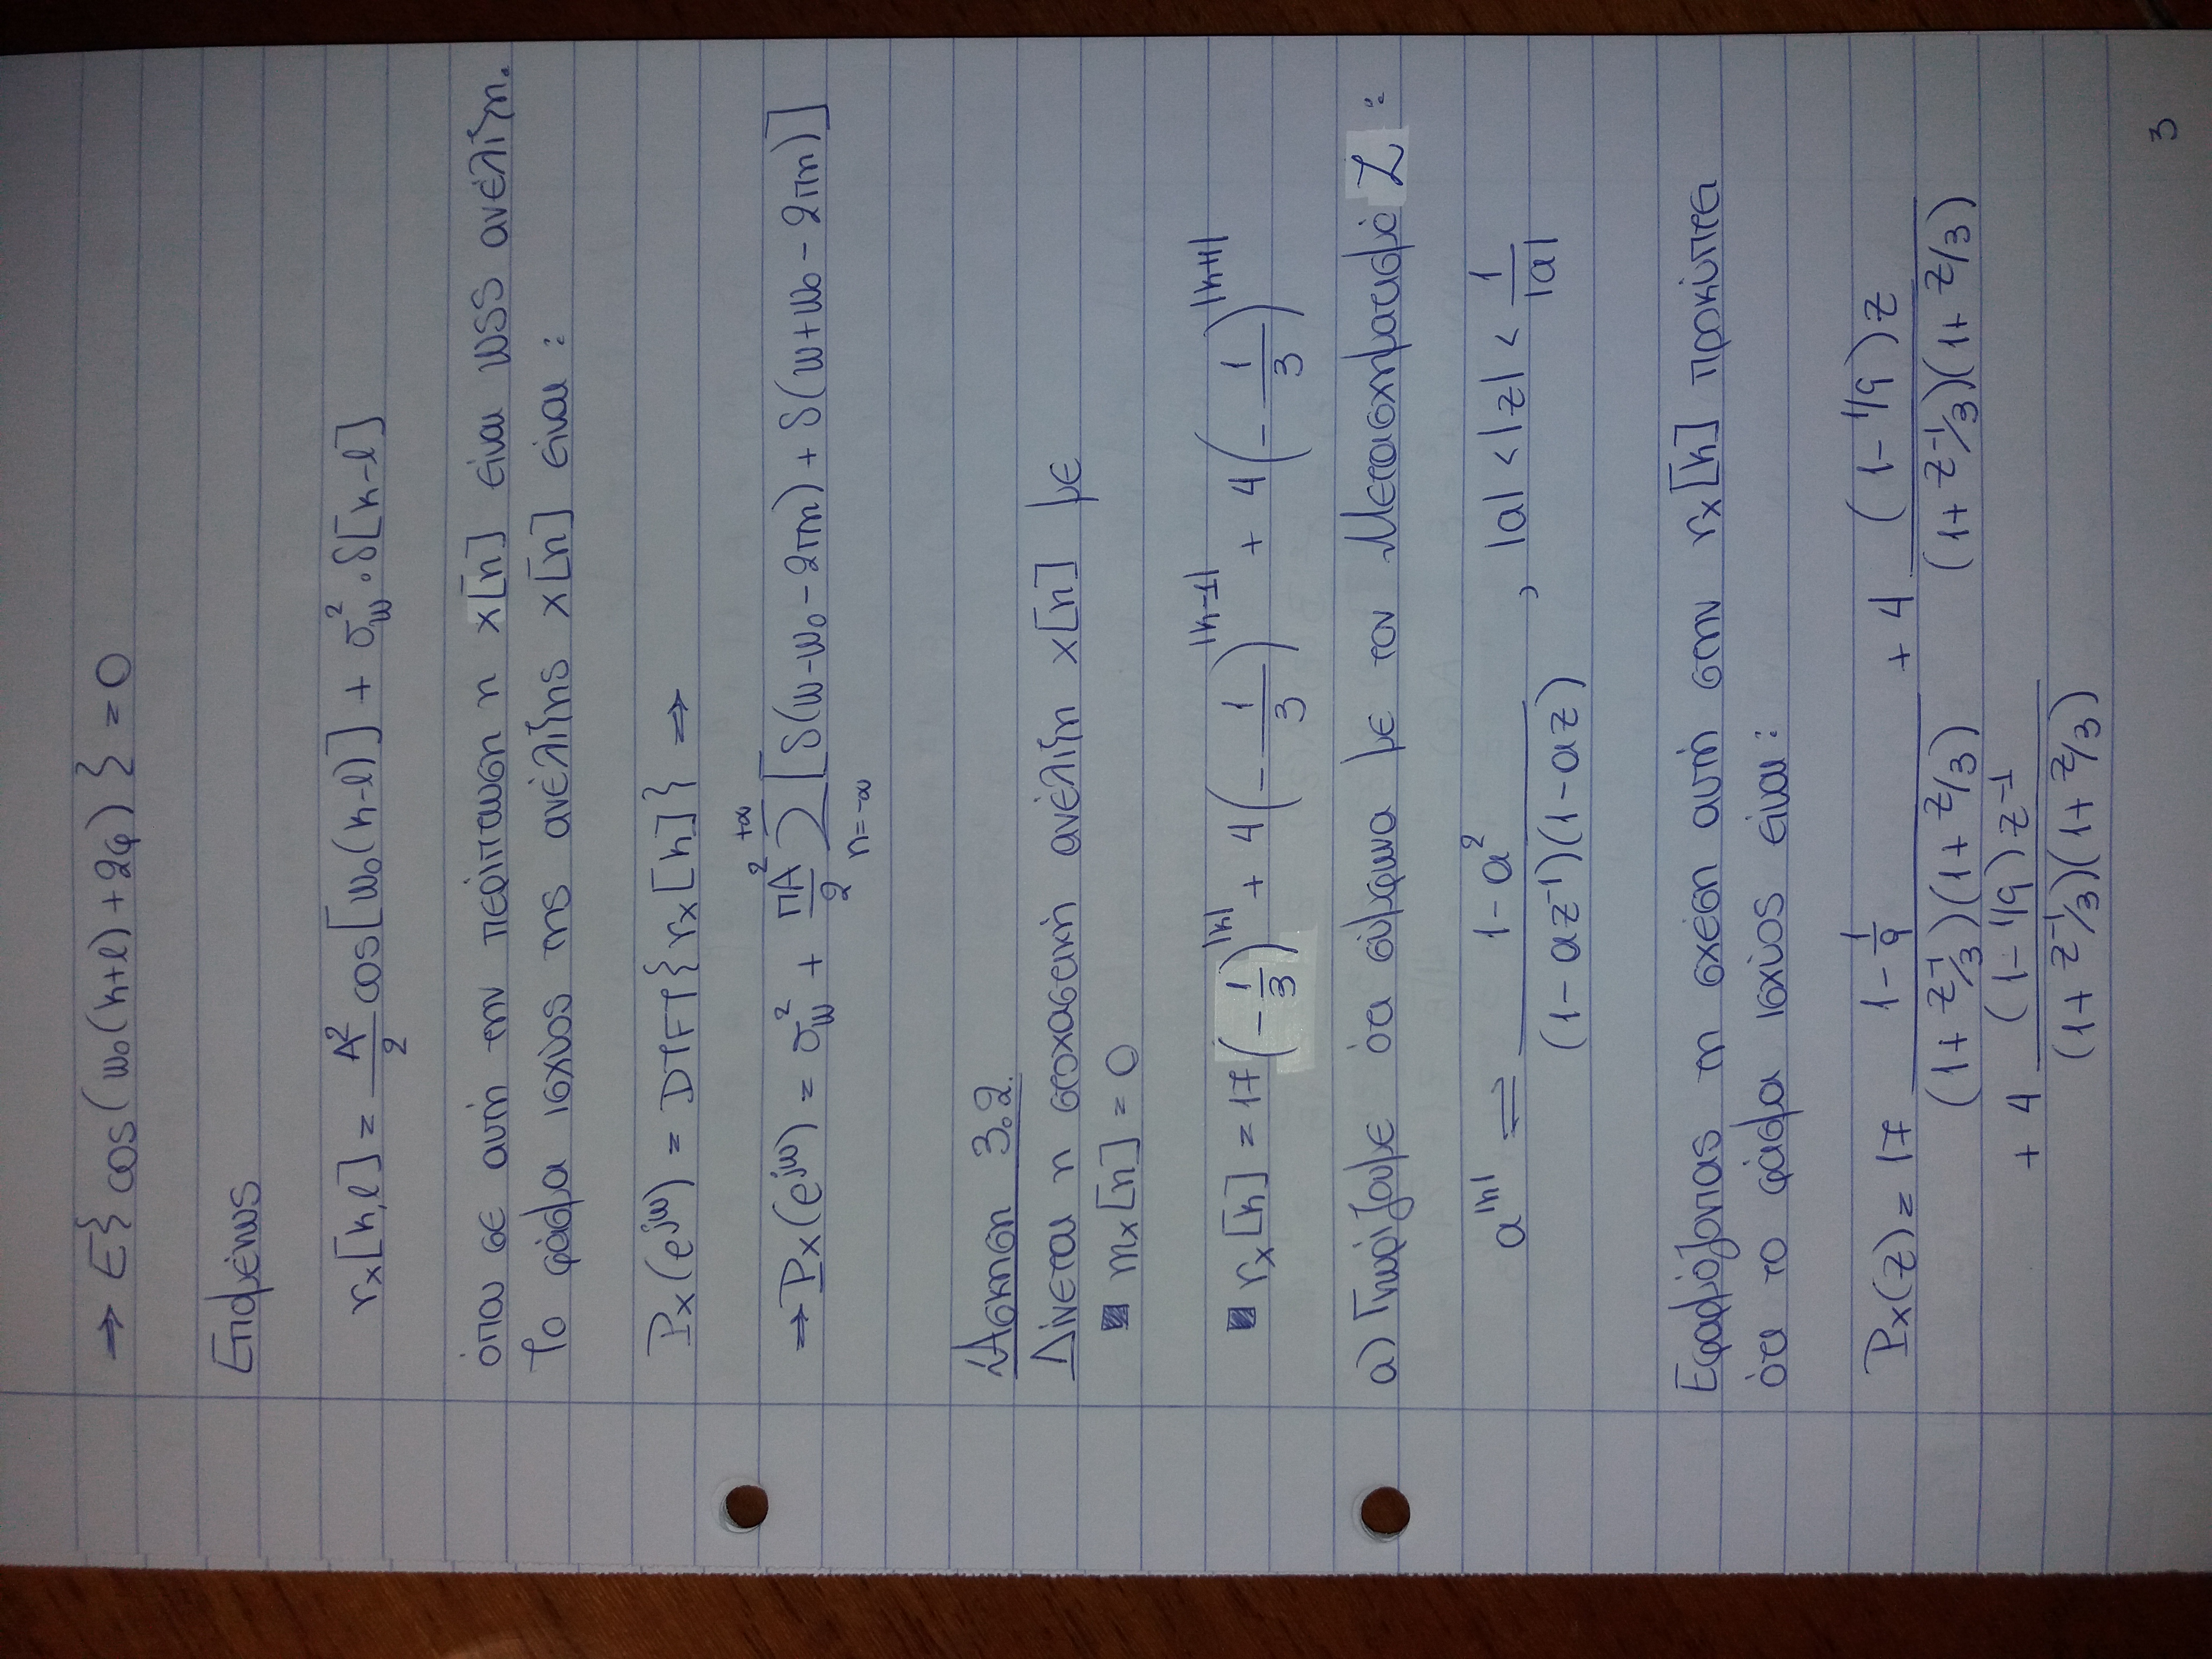 ⇒ E{ cos(ω₀(k+l) + 2φ) } = 0
Επομένως
rₓ[k,l] = A²/2 cos[ω₀(k-l)] + σ_w² · δ[k-l]
όπου σε αυτή την περίπτωση η x[n] είναι WSS ανέλιξη.
Το φάσμα ισχύος της ανέλιξης x[n] είναι :
Pₓ(e^{jω}) = DTFT{rₓ[k]} ⇒
⇒ Pₓ(e^{jω}) = σ_w² + πA²/2 Σ_{n=-∞}^{+∞} [δ(ω-ω₀-2πn) + δ(ω+ω₀-2πn)]
Άσκηση 3.2.
Δίνεται η στοχαστική ανέλιξη x[n] με
■ mₓ[n] = 0
■ rₓ[k] = 17(-1/3)^{|k|} + 4(-1/3)^{|k-1|} + 4(-1/3)^{|k+1|}
α) Γνωρίζουμε ότι σύμφωνα με τον Μετασχηματισμό Z :
a^{|k|} ⇌ (1-a²)/((1-az⁻¹)(1-az)) , |a| < |z| < 1/|a|
Εφαρμόζοντας τη σχέση αυτή στην rₓ[k] προκύπτει
ότι το φάσμα ισχύος είναι :
Pₓ(z) = 17 (1-1/9)/((1+z⁻¹/3)(1+z/3)) + 4 ((1-1/9)z)/((1+z⁻¹/3)(1+z/3))
+ 4 ((1-1/9)z⁻¹)/((1+z⁻¹/3)(1+z/3))
3